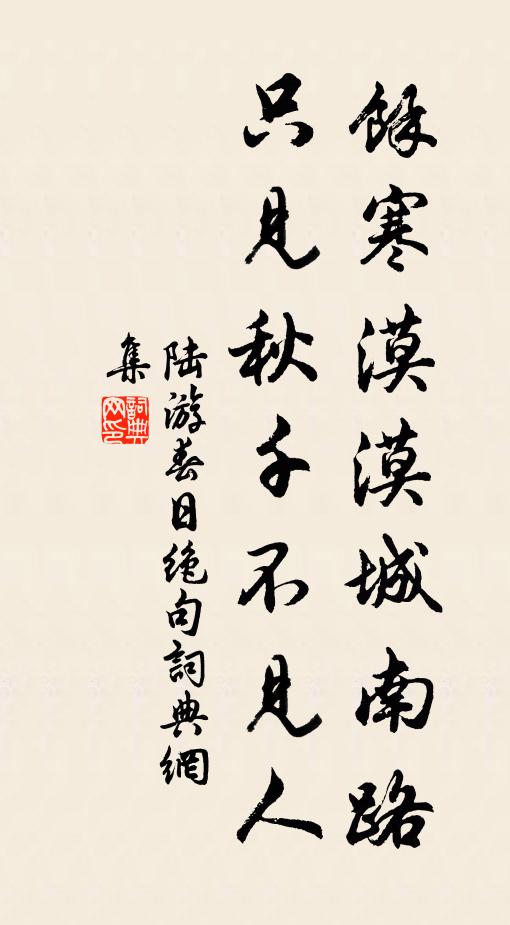 餘寒漠漠城南路
只見秋千不見人
陆游春日绝句詞典網
集
詞典网印